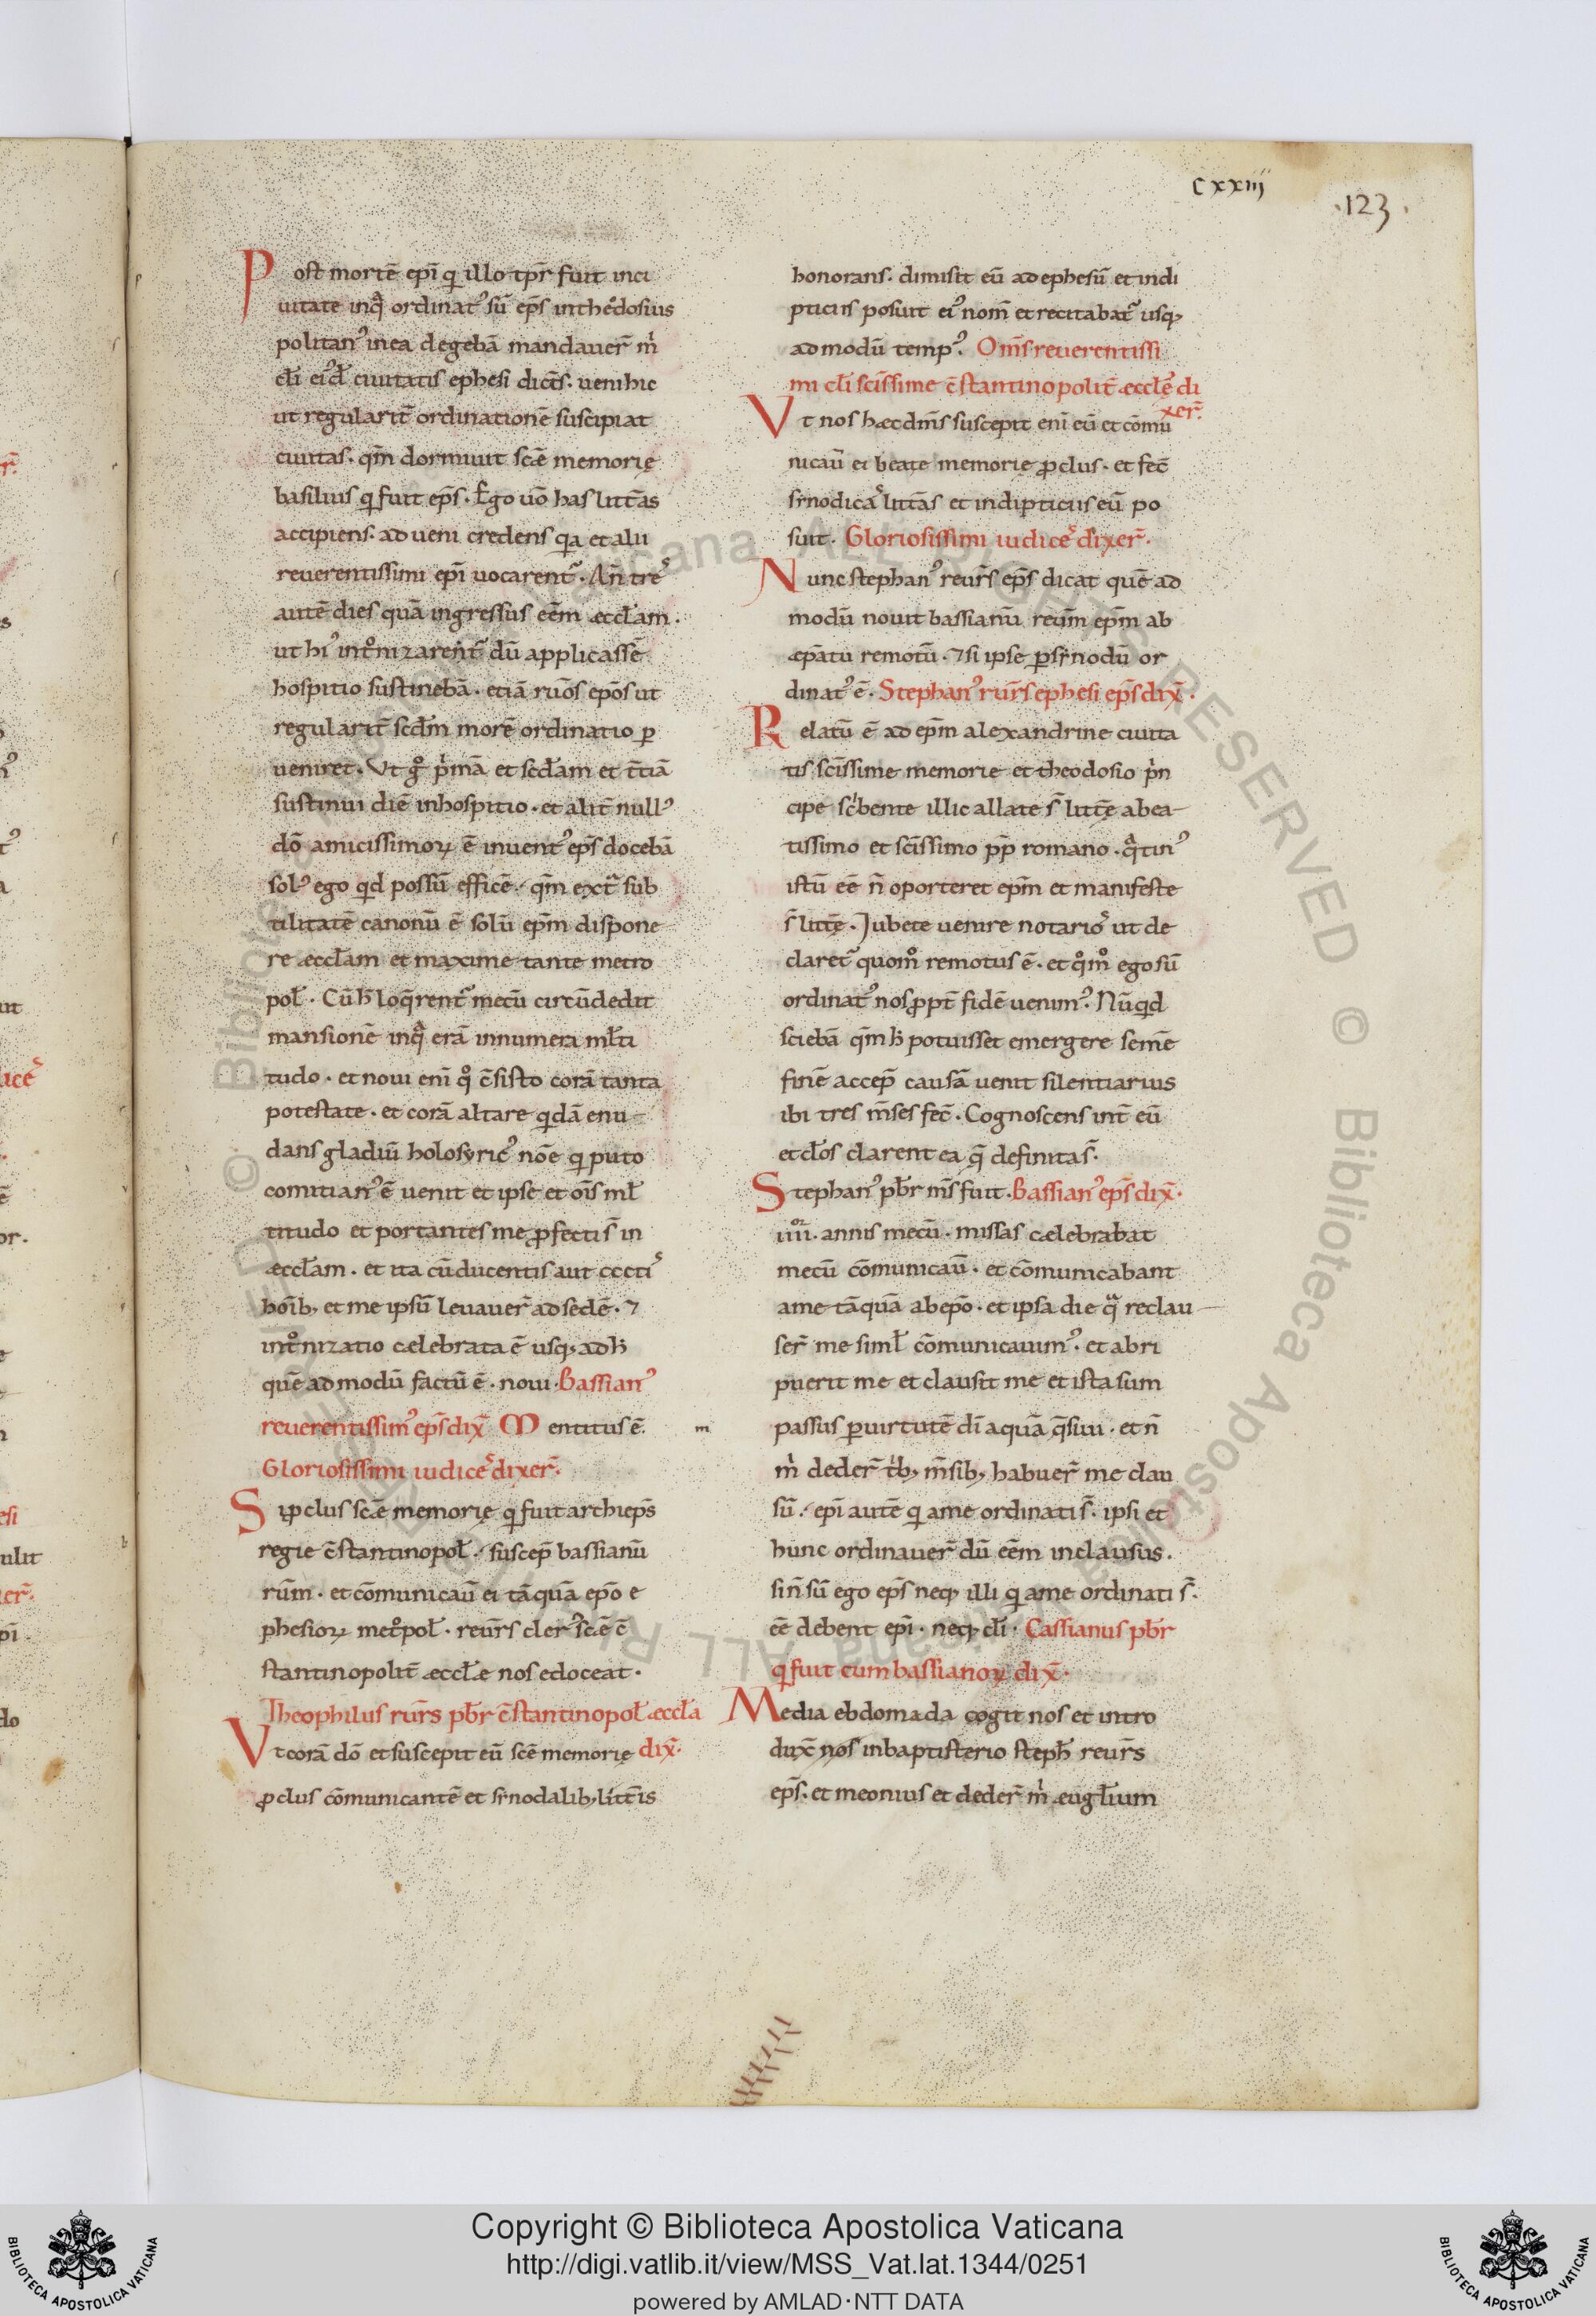 cxxiij
·123·
Post mortē ep̄i q illo tp̄r fuit in ci
uitate inq̄ ordinatꝰ sū ep̄s in theodosius
politanꝰ in ea degebā mandauer̄ ṁ
cl̄i eiꝰd̄ ciuitatis ephesi dic̄s. ueni hic
ut regularit̄ ordinationē suscipiat
ciuitas. qm̄ dormiuit sc̄e memorię
basilius q fuit ep̄s. Ego uō has litt̄as
accipiens. ad ueni credens qa et alii
reuerentissimi ep̄i uocarent᷑. An̄ tres
autē dies quā ingressus eēm æccl̄am.
ut hiꝰ int̊nizarent᷑ dū applicassē
hospitio sustinebā. etiā ruōs ep̄os ut
regularit̄ scd̄m morē ordinatio ꝑ
ueniret. Ut gº pͥmā et scd̄am et t̄tiā
sustinui diē in hospitio. et alit̄ nullꝰ
dō amicissimoꝝ ē inuentꝰ ep̄s docebā
solꝰ ego qd possū efficē. qm̄ extᷓ sub
tilitatē canonū ē solū ep̄m dispone
re æccl̄am et maxime tante metro
pol̄. Cū h̄ loqrent᷑ mecū circūdedit
mansionē inqᷓ erā innumera ml̄ti
tudo. et noui eni qº c̄sisto corā tanta
potestate. et corā altare qdā enu
dans gladiū holosyricꝰ nōe q puto
comitianꝰ ē uenit et ipse et ōis ml̄
titudo et portantes me ꝓfecti s̄ in
æccl̄am. et ita cū ducentis aut ccctis
hoīb; et me ipsū leuauer̄ ad sedē. ⁊
int̊nizatio celebrata ē usq; ad h̄
quē ad modū factū ē. noui. Bassianꝰ
reuerentissimꝰ ep̄s dix̄ Mentitus ē. m
Gloriosissimi iudices dixer̄.
Si ꝓclus sc̄e memorię q fuit archiep̄s
regie c̄stantinopol̄. suscep̄ bassianū
rūm. et cōmunicaū ei tāquā ep̄o e
phesioꝝ met̊pol̄. reur̄s clerꝰ sc̄e c̄
stantinopolit̄ æccl̄æ nos edoceat.
Theophilus rur̄s pb̄r c̄stantinopol̄ æccl̄a
Vt corā dō et suscepit eū sc̄e memorię dix̄.
ꝓclus cōmunicantē et sr̄nodalib; litt̄is
honorans. dimisit eū ad ephesū et in di
pticiis posuit eiꝰ nom̄ et recitabat᷑ usq;
ad modū tempꝰ. Om̄s reuerentissi
mi cl̄i sc̄issime c̄stantinopolit̄ æccl̄ę di
xer̄.
Vt nos hæc dm̄s suscepit eni eū et cōmu
nicaū ei beate memorię ꝓclus. et fec̄
sr̄nodicas litt̄as et in dipticiis eū po
suit. Gloriosissimi iudices dixer̄.
Nunc stephanꝰ reur̄s ep̄s dicat quē ad
modū nouit bassianū reūm ep̄m ab
æp̄atu remotū. ⁊ si ipse ꝑ sr̄nodū or
dinatꝰ ē. Stephanꝰ rur̄s ephesi ep̄s dix̄.
Relatū ē ad ep̄m alexandrine ciuita
tis sc̄issime memorie et theodosio pͥn
cipe scͥbente illic allate s̄ litt̄ę a bea
tissimo et sc̄issimo pp̄ romano. qᷓtinꝰ
istū eē n̄ oporteret ep̄m et manifeste
s̄ litt̄ę. Jubete uenire notarios ut de
claret᷑ quomº remotus ē. et qºmº ego sū
ordinatꝰ nos ꝓpt̄ fidē uenimꝰ. Nūqd
sciebā qm̄ h̄ potuisset emergere semē
finē accep̄ causā uenit silentiarius
ibi tres m̄ses fec̄. Cognoscens int̄ eū
et cl̄os clarent ea q̄ definita s̄.
Stephanꝰ pb̄r m̄s fuit. Bassianꝰ ep̄s dix̄.
iiiior. annis mecū. missas celebrabat
mecū cōmunicaū. et cōmunicabant
a me tāquā ab ep̄o. et ipsa die qᷓ reclau
ser̄ me simł cōmunicauimꝰ. et abri
puerit me et clausit me et ista sum
passus ꝑ uirtutē dī a quā q̄siui. et n̄
ṁ deder̄ c̄b; m̄sib; habuer̄ me clau
sū. ep̄i autē q a me ordinati s̄. ipsi et
hunc ordinauer̄ dū eēm inclausus.
si n̄ sū ego ep̄s neq; illi q a me ordinati s̄.
eē debent ep̄i. neq; cl̄i. Cassianus pb̄r
q fuit cum bassianoꝝ dix̄.
Media ebdomada cogit nos et intro
dux̄ nos in baptisterio steph̄ reur̄s
ep̄s. et meonius et deder̄ ṁ æugl̄ium
Copyright © Biblioteca Apostolica Vaticana
http://digi.vatlib.it/view/MSS_Vat.lat.1344/0251
powered by AMLAD·NTT DATA
BIBLIOTECA APOSTOLICA VATICANA
BIBLIOTECA APOSTOLICA VATICANA